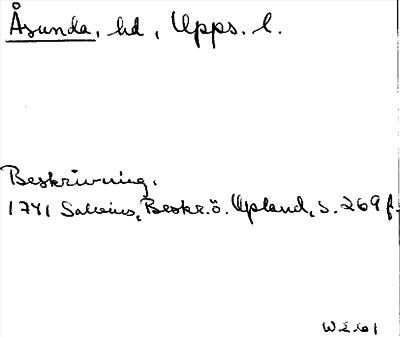 Åsunda, hd, Upps. l.
Beskrivning.
1741 Salvius, Beskr. ö. Upland, s. 269 f.
W.E. 61